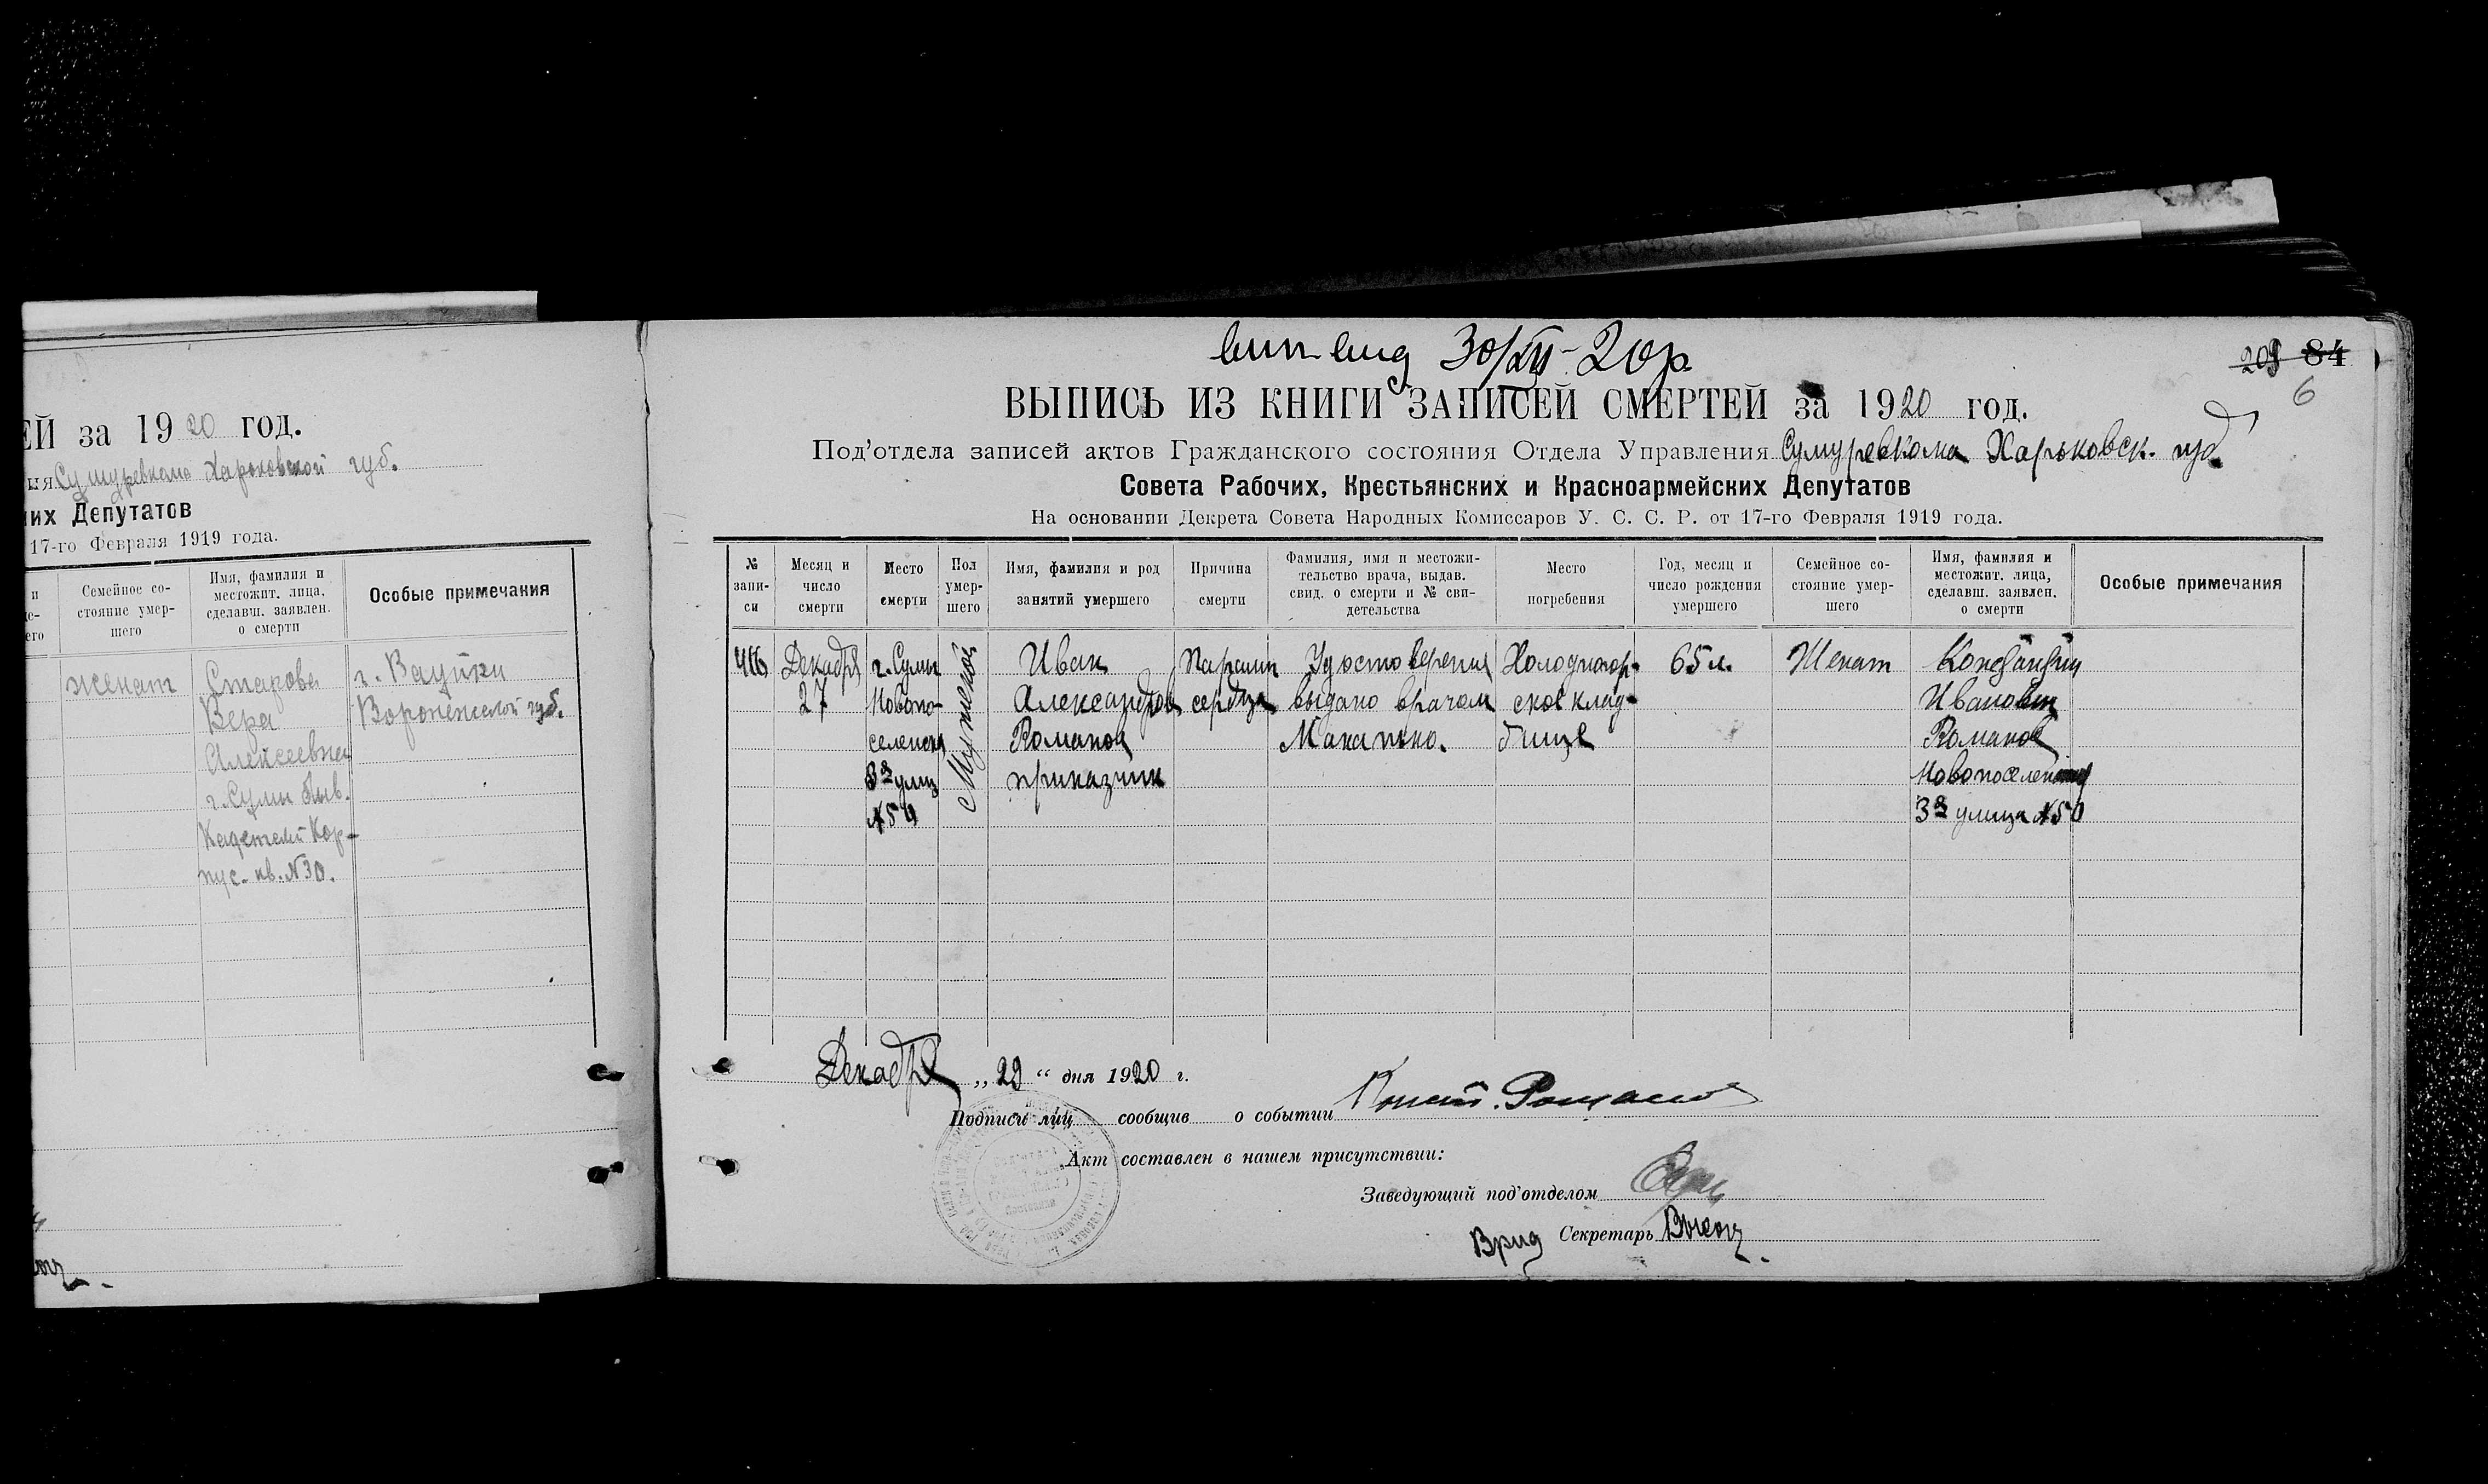 ЕЙ за 1920 год.
ия Сумуревкома Харьковской губ.
их Депутатов
17-го Февраля 1919 года.
Семейное со-
стояние умер-
шего
Имя, фамилия и
местожит. лица,
сделавш. заявлен.
о смерти
Особые примечания
женат
Старова
Вера
Алексеевна
г. Сумы быв.
Кадетский Кор-
пус. кв. N 30.
г.
Воронежской губ.
30/XII-20 р.
209 84
6
ВЫПИСЬ ИЗ КНИГИ ЗАПИСЕЙ СМЕРТЕЙ за 1920 год.
Под'отдела записей актов Гражданского состояния Отдела Управления Сумуревкома Харьковск. губ
Совета Рабочих, Крестьянских и Красноармейских Депутатов
На основании Декрета Совета Народных Комиссаров У. С. С. Р. от 17-го Февраля 1919 года.
№
запи-
си
Месяц и
число
смерти
Место
смерти
Пол
умер-
шего
Имя, фамилия и род
занятий умершего
Причина
смерти
Фамилия, имя и местожи-
тельство врача, выдав.
свид. о смерти и № сви-
детельства
Место
погребения
Год, месяц и
число рождения
умершего
Семейное со-
стояние умер-
шего
Имя, фамилия и
местожит. лица,
сделавш. заявлен.
о смерти
Особые примечания
Декабря
27
г. Сумы
Новопо-
селенская
3я улиц
Мужской
Иван
Александров
Романов
приказчик
Паралич
сердца
Удостоверения
выдано врачом
Холодногор-
ское клад-
бище
65 л.
Женат
Константин
Иванович
Романов
Новопоселенская
3я улица N 50
Декабря „ 29 “ дня 1920 г.
Подписи лиц сообщив о событии Конст. Романов
Акт составлен в нашем присутствии:
Заведующий под'отделом
Врид Секретарь